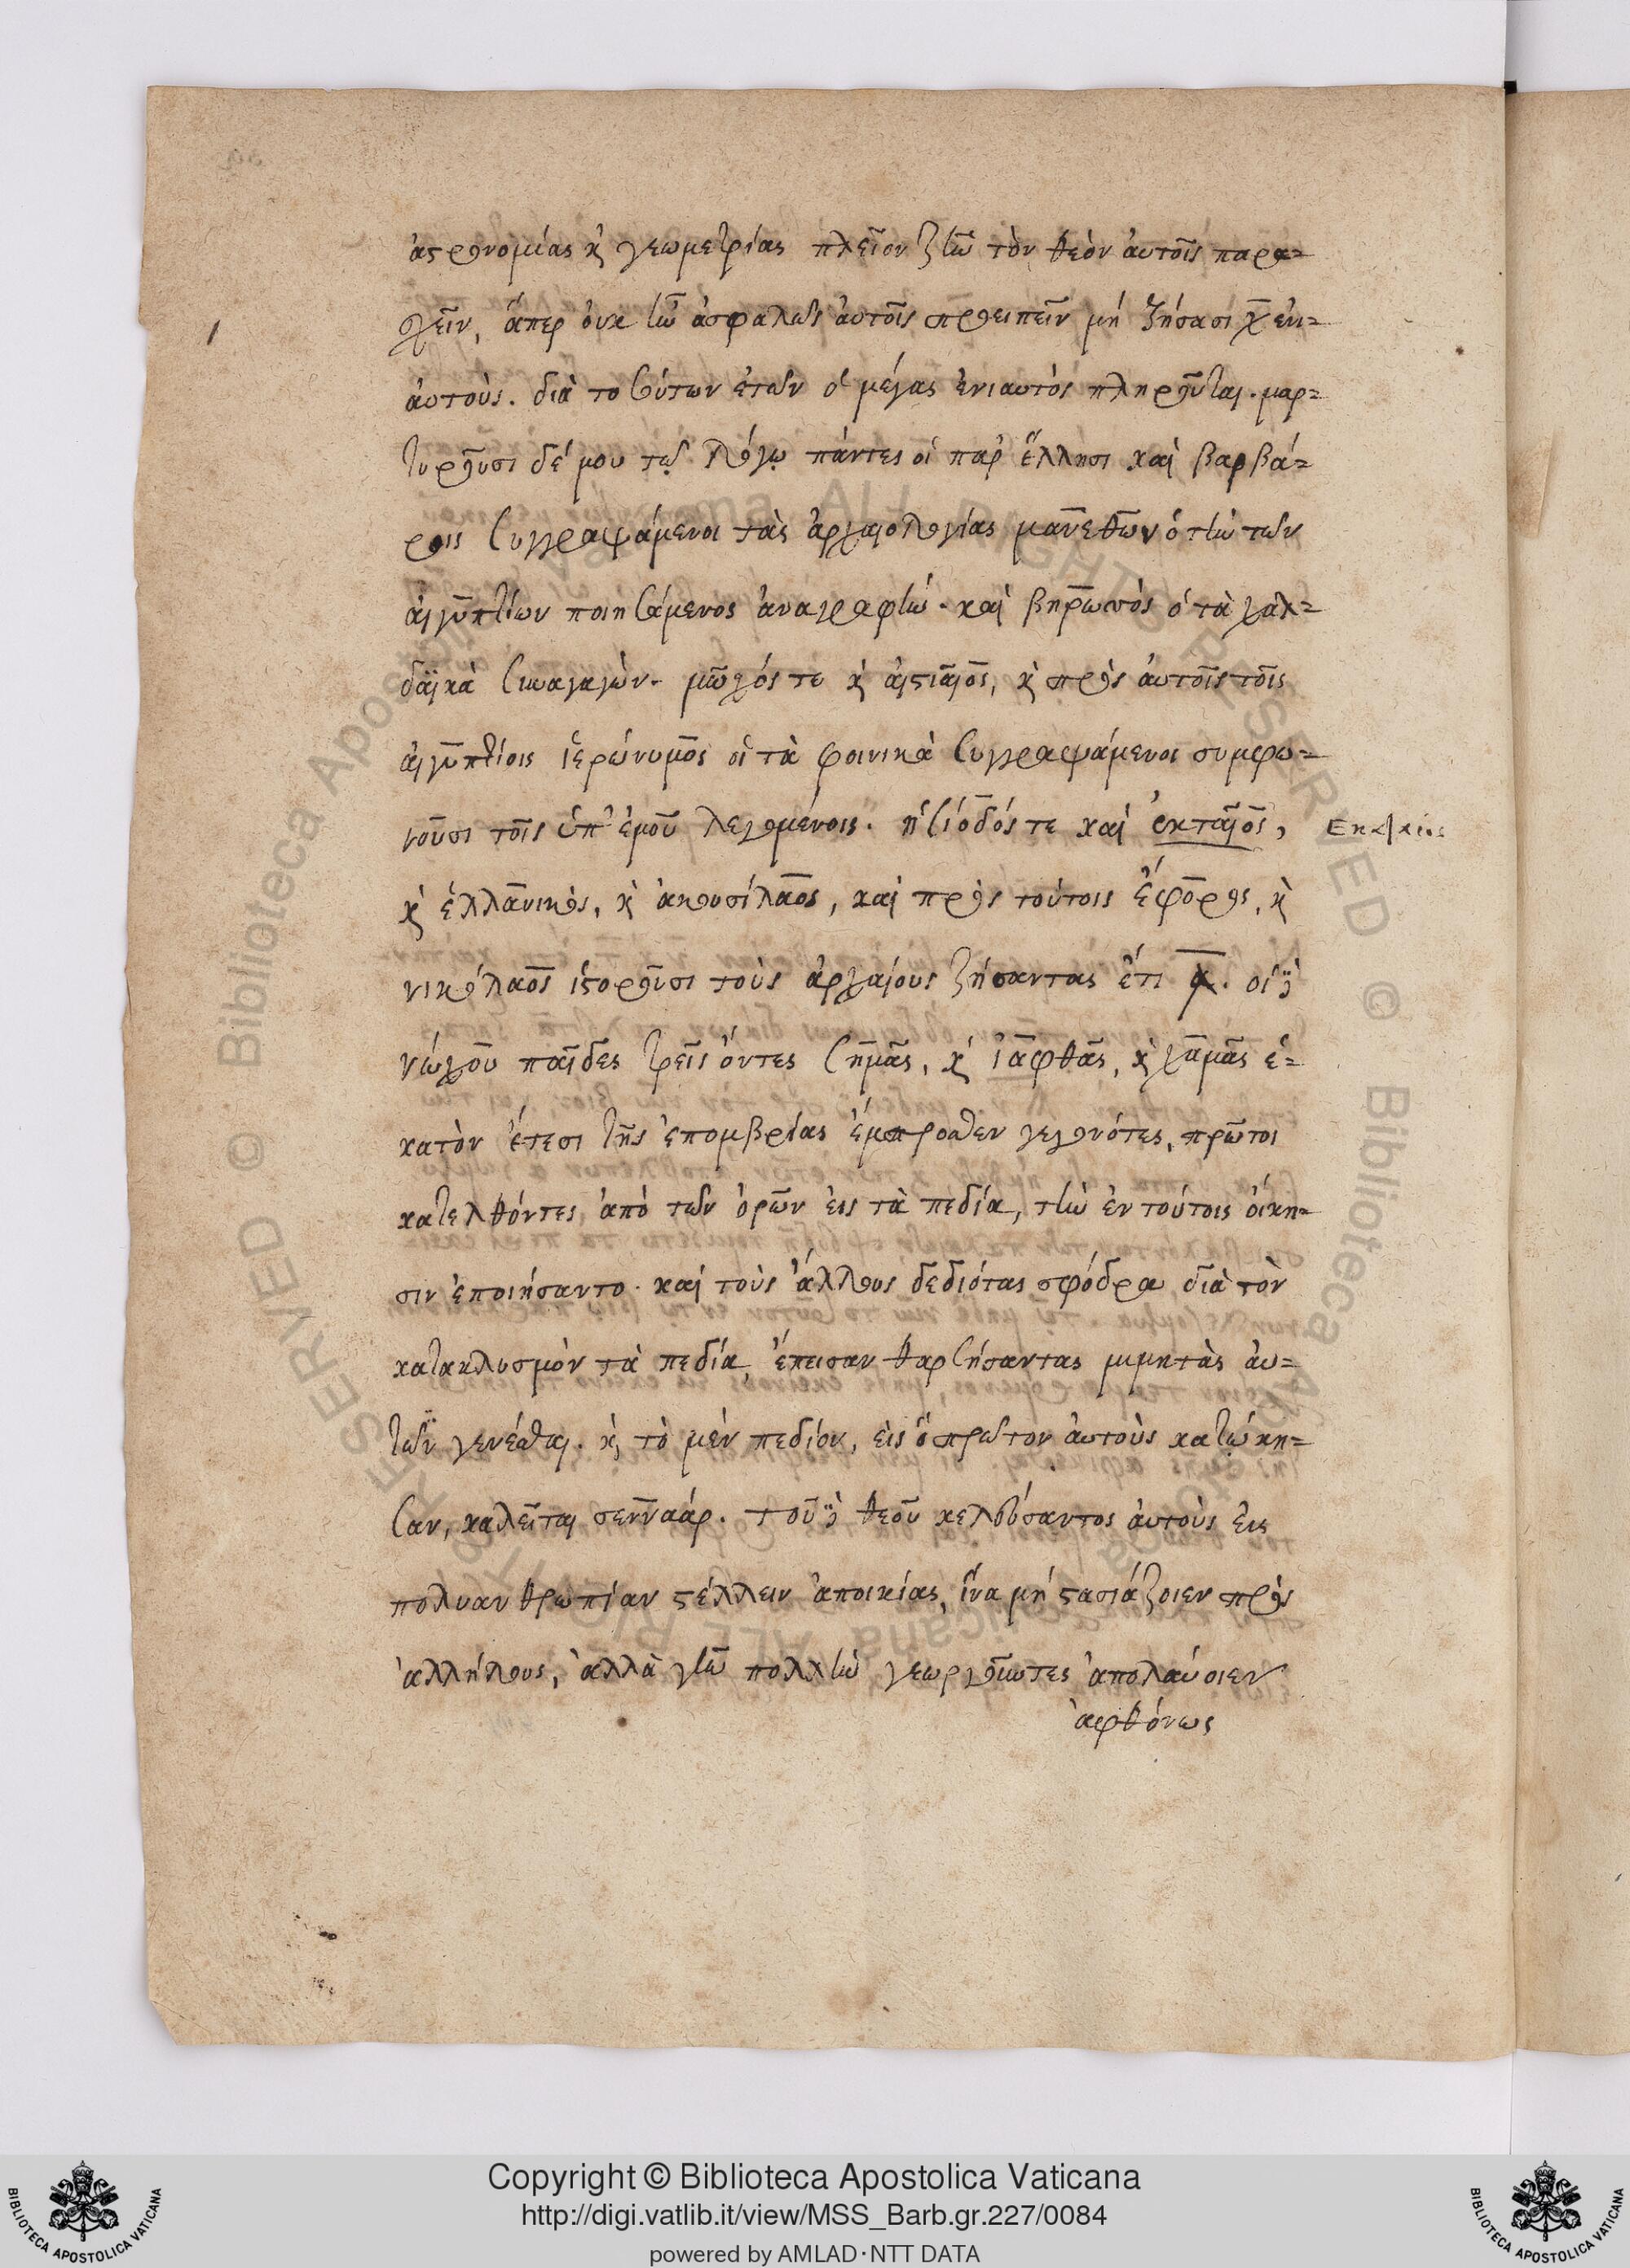 ἀστρονομίας καὶ γεωμετρίας πλεῖον ζῆν τὸν θεὸν αὐτοῖς παρα=
χεῖν, ἅπερ οὐκ ἦν ἀσφαλῶς αὐτοῖς προειπεῖν μή ζήσασι χ ἐνι=
αὐτοὺς. διὰ τοσούτων ἐτῶν ὁ μέγας ἐνιαυτὸς πληροῦται. μαρ=
τυροῦσι δέ μου τῷ λόγῳ πάντες οἱ παρ' ἕλλησι καὶ βαρβά=
ροις συγγραψάμενοι τὰς ἀρχαιολογίας μανεθῶν ὁ τὴν τῶν
αἰγυπτίων ποιησάμενος ἀναγραφήν. καὶ βηρωσὸς ὁ τὰ χαλ=
δαϊκὰ συναγαγὼν. μῶχός τε καὶ ἁιστιαῖος, καὶ πρὸς αὐτοῖς τοῖς
αἰγυπτίοις ἱερώνυμος οἱ τὰ φοινικὰ συγγραψάμενοι συμφω=
νοῦσι τοῖς ὑπ' ἐμοῦ λεγομένοις. ἡσίοδός τε καὶ ἑκταῖος,
καὶ ἑλλάνικος, καὶ ἀκουσίλαος, καὶ πρὸς τούτοις ἔφορος, καὶ
νικόλαος ἱστοροῦσι τοὺς ἀρχαίους ζήσαντας ἔτι ͵α. οἱ δὲ
νώχου παῖδες τρεῖς ὄντες σημᾶς, καὶ ἰαφθᾶς, καὶ χαμᾶς ἑ=
κατὸν ἔτεσι τῆς ἐπομβρίας ἔμπροσθεν γεγονότες, πρῶτοι
κατελθόντες ἀπὸ τῶν ὀρῶν εἰς τὰ πεδία, τὴν ἐν τούτοις οἴκη=
σιν ἐποιήσαντο. καὶ τοὺς ἄλλους δεδιότας σφόδρα διὰ τὸν
κατακλυσμὸν τὰ πεδία, ἔπεισαν θαρσήσαντας μιμητὰς αὐ=
τῶν γενέσθαι. καὶ τὸ μὲν πεδίον, εἰς ὃ πρῶτον αὐτοὺς κατῴκη=
σαν, καλεῖται σενναάρ. τοῦ δὲ θεοῦ κελεύσαντος αὐτοὺς εἰς
πολυανθρωπίαν στέλλειν ἀποικίας, ἵνα μὴ στασιάζοιεν πρὸς
ἀλλήλους, ἀλλὰ γῆν πολλὴν γεωργοῦντες ἀπολαύοιεν
ἀφθόνως
Copyright © Biblioteca Apostolica Vaticana
http://digi.vatlib.it/view/MSS_Barb.gr.227/0084
powered by AMLAD·NTT DATA
BIBLIOTECA APOSTOLICA VATICANA
BIBLIOTECA APOSTOLICA VATICANA